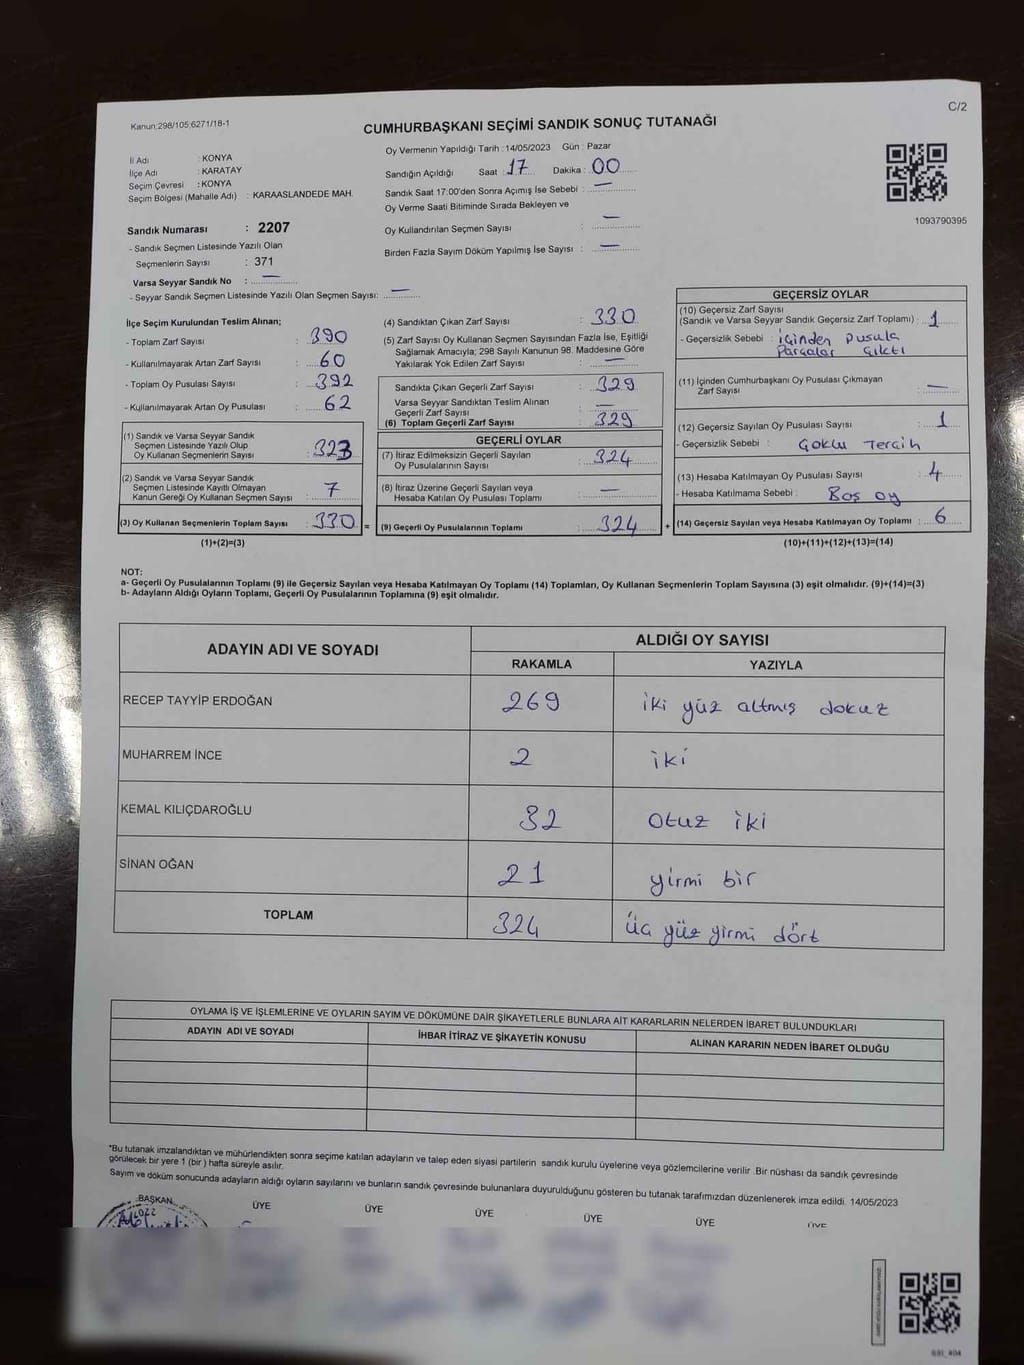 C/2
Kanun;298/105;6271/18-1
CUMHURBAŞKANI SEÇİMİ SANDIK SONUÇ TUTANAĞI
İl Adı : KONYA
İlçe Adı : KARATAY
Seçim Çevresi : KONYA
Seçim Bölgesi (Mahalle Adı) : KARAASLANDEDE MAH.
Oy Vermenin Yapıldığı Tarih : 14/05/2023 Gün : Pazar
Sandığın Açıldığı Saat : 17 Dakika : 00
Sandık Saat 17:00'den Sonra Açımış İse Sebebi : —
Oy Verme Saati Bitiminde Sırada Bekleyen ve
Oy Kullandırılan Seçmen Sayısı : —
Birden Fazla Sayım Döküm Yapılmış İse Sayısı : —
1093790395
Sandık Numarası : 2207
- Sandık Seçmen Listesinde Yazılı Olan
Seçmenlerin Sayısı : 371
Varsa Seyyar Sandık No : —
- Seyyar Sandık Seçmen Listesinde Yazılı Olan Seçmen Sayısı: —
İlçe Seçim Kurulundan Teslim Alınan;
- Toplam Zarf Sayısı : 390
- Kullanılmayarak Artan Zarf Sayısı : 60
- Toplam Oy Pusulası Sayısı : 392
- Kullanılmayarak Artan Oy Pusulası : 62
(1) Sandık ve Varsa Seyyar Sandık
Seçmen Listesinde Yazılı Olup
Oy Kullanan Seçmenlerin Sayısı : 323
(2) Sandık ve Varsa Seyyar Sandık
Seçmen Listesinde Kayıtlı Olmayan
Kanun Gereği Oy Kullanan Seçmen Sayısı : 7
(3) Oy Kullanan Seçmenlerin Toplam Sayısı : 330 =
(1)+(2)=(3)
(4) Sandıktan Çıkan Zarf Sayısı : 330
(5) Zarf Sayısı Oy Kullanan Seçmen Sayısından Fazla İse, Eşitliği
Sağlamak Amacıyla; 298 Sayılı Kanunun 98. Maddesine Göre
Yakılarak Yok Edilen Zarf Sayısı : —
Sandıkta Çıkan Geçerli Zarf Sayısı : 329
Varsa Seyyar Sandıktan Teslim Alınan
Geçerli Zarf Sayısı : —
(6) Toplam Geçerli Zarf Sayısı : 329
GEÇERLİ OYLAR
(7) İtiraz Edilmeksizin Geçerli Sayılan
Oy Pusulalarının Sayısı : 324
(8) İtiraz Üzerine Geçerli Sayılan veya
Hesaba Katılan Oy Pusulası Toplamı : —
(9) Geçerli Oy Pusulalarının Toplamı : 324 +
GEÇERSİZ OYLAR
(10) Geçersiz Zarf Sayısı
(Sandık ve Varsa Seyyar Sandık Geçersiz Zarf Toplamı) : 1
- Geçersizlik Sebebi : içinden pusula
Parçalar çıktı
(11) İçinden Cumhurbaşkanı Oy Pusulası Çıkmayan
Zarf Sayısı : —
(12) Geçersiz Sayılan Oy Pusulası Sayısı : 1
- Geçersizlik Sebebi : Çoklu Tercih
(13) Hesaba Katılmayan Oy Pusulası Sayısı : 4
- Hesaba Katılmama Sebebi : Boş oy
(14) Geçersiz Sayılan veya Hesaba Katılmayan Oy Toplamı : 6
(10)+(11)+(12)+(13)=(14)
NOT:
a- Geçerli Oy Pusulalarının Toplamı (9) ile Geçersiz Sayılan veya Hesaba Katılmayan Oy Toplamı (14) Toplamları, Oy Kullanan Seçmenlerin Toplam Sayısına (3) eşit olmalıdır. (9)+(14)=(3)
b- Adayların Aldığı Oyların Toplamı, Geçerli Oy Pusulalarının Toplamına (9) eşit olmalıdır.
ADAYIN ADI VE SOYADI ALDIĞI OY SAYISI
RAKAMLA YAZIYLA
RECEP TAYYİP ERDOĞAN 269 iki yüz altmış dokuz
MUHARREM İNCE 2 iki
KEMAL KILIÇDAROĞLU 32 Otuz iki
SİNAN OĞAN 21 yirmi bir
TOPLAM 324 Üç yüz yirmi dört
OYLAMA İŞ VE İŞLEMLERİNE VE OYLARIN SAYIM VE DÖKÜMÜNE DAİR ŞİKAYETLERLE BUNLARA AİT KARARLARIN NELERDEN İBARET BULUNDUKLARI
ADAYIN ADI VE SOYADI İHBAR İTİRAZ VE ŞİKAYETİN KONUSU ALINAN KARARIN NEDEN İBARET OLDUĞU
*Bu tutanak imzalandıktan ve mühürlendikten sonra seçime katılan adayların ve talep eden siyasi partilerin sandık kurulu üyelerine veya gözlemcilerine verilir .Bir nüshası da sandık çevresinde
görülecek bir yere 1 (bir ) hafta süreyle asılır.
Sayım ve döküm sonucunda adayların aldığı oyların sayılarını ve bunların sandık çevresinde bulunanlara duyurulduğunu gösteren bu tutanak tarafımızdan düzenlenerek imza edildi. 14/05/2023
BAŞKAN ÜYE ÜYE ÜYE ÜYE ÜYE ÜYE